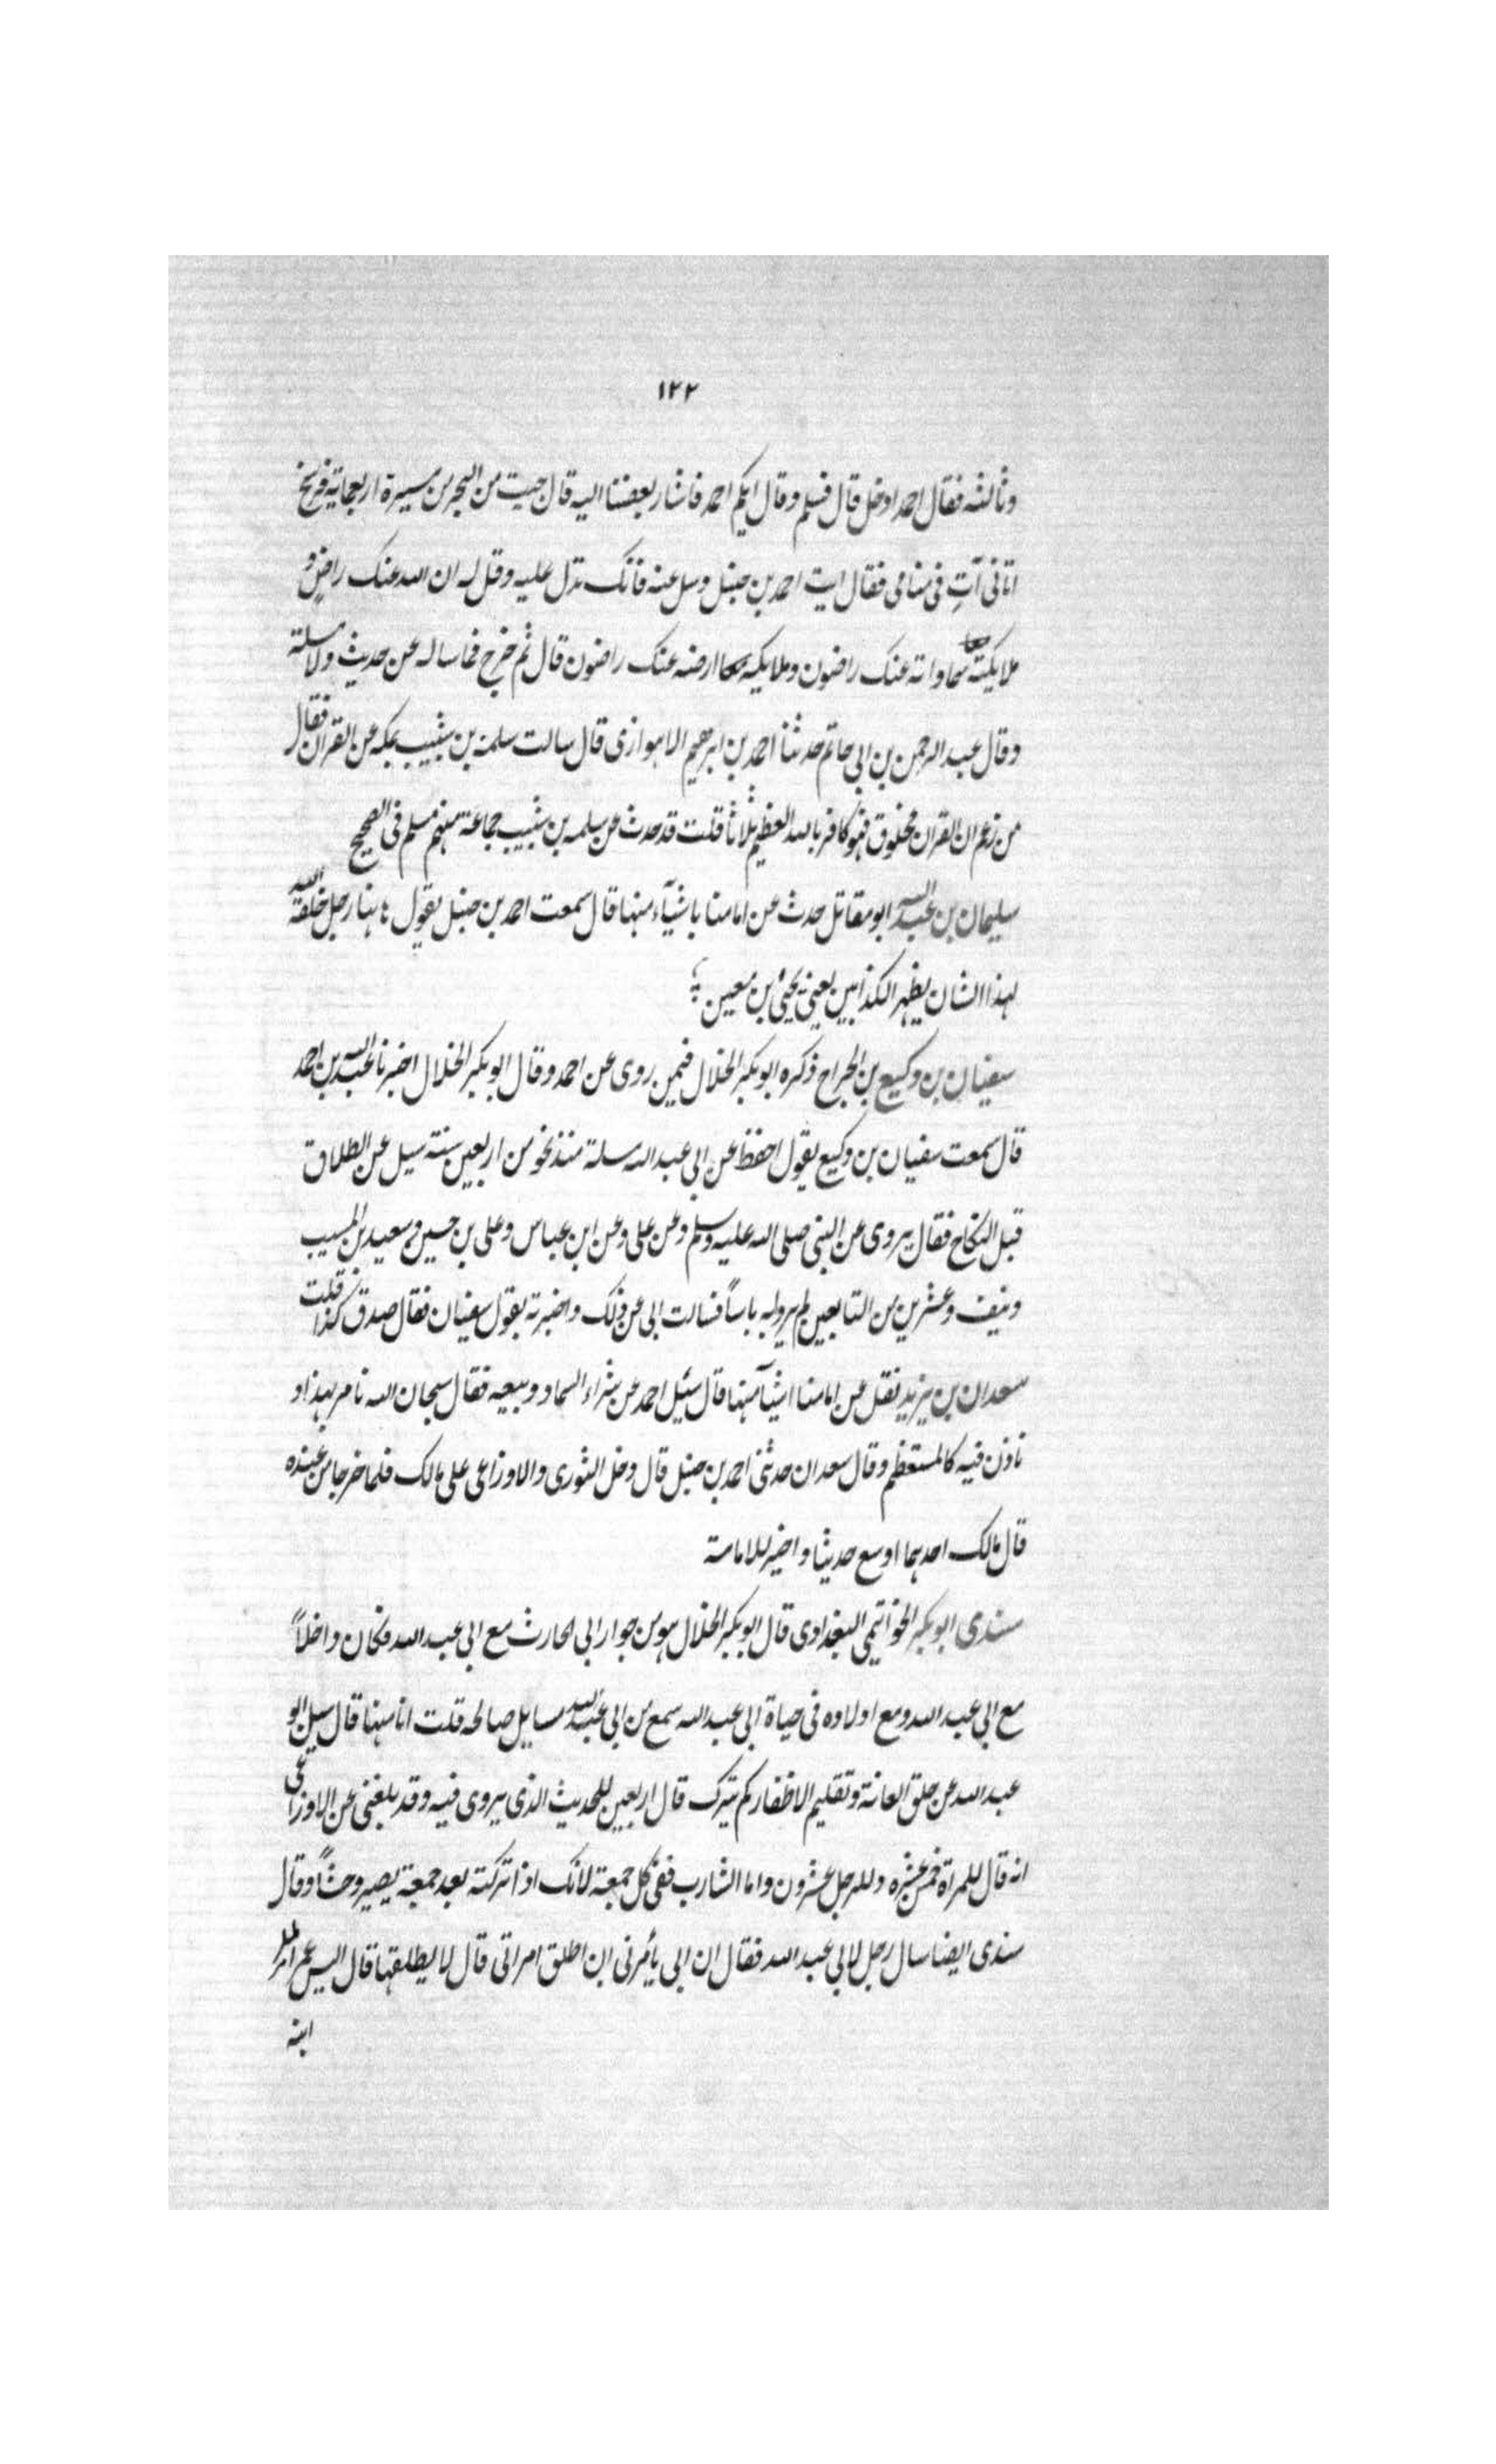 ١٢٢
وثالثه فقال احمد ادخل قال فسلم وقال ايكم احمد فاشار بعضنا اليه قال جيت من البحر من مسيرة اربعمايه فرسخ
اتانى آتٍ فى منامى فقال ايت احمد بن حنبل وسل عنه فانك تدل عليه وقل له ان الله عنك راضٍ و
ملايكته سماواته عنك راضون وملايكه ارضه عنك راضون قال ثم خرج فما ساله عن حديث ولا مسلة
وقال عبد الرحمن بن ابى حاتم حدثنا احمد بن ابرهيم الاهوازى قال سالت سلمة بن شبيب بمكه عن القران فقال
من زعم ان القران مخلوق فهو كافر بالله العظيم ثلاثا قلت قد حدث عن سلمه بن شبيب جماعة منهم مسلم فى الصحيح
سليمان بن عبد الله ابو مقاتل حدث عن امامنا باشيآء منها قال سمعت احمد بن حنبل يقول هاهنا رجل خلقه الله
لهذا الشان يظهر الكذابين يعنى يحيى بن معين
سفيان بن وكيع بن الجراح ذكره ابو بكر الخلال فيمن روى عن احمد وقال ابو بكر الخلال اخبرنا عبد الله بن احمد
قال سمعت سفيان بن وكيع يقول احفظ عن ابى عبد الله مسلة منذ نحو من اربعين سنة سيل عن الطلاق
قبل النكاح فقال يروى عن النبى صلى الله عليه وسلم وعن على وعن ابن عباس وعلى بن حسين وسعيد بن المسيب
ونيف وعشرين من التابعين لم يروا به باساً فسالت ابى عن ذلك واخبرته بقول سفيان فقال صدق كذا قلت
سعدان بن يزيد نقل عن امامنا اشيآ منها قال سئيل احمد عن شراء السماد وبيعه فقال سبحان الله نامر بهذا و
ناذن فيه كالمستعظم وقال سعدان حدثنى احمد بن حنبل قال دخل الثورى والاوزاعى على مالك فلما خرجا من عنده
قال مالك احدهما اوسع حديثا واخير للامامة
سندى ابو بكر الخواتيمى البغدادى قال ابو بكر الخلال هو من جوار ابى الحارث مع ابى عبد الله فكان داخلاً
مع ابى عبد الله ومع اولاده فى حياة ابى عبد الله سمع من ابى عبد الله مسايل صالحه قلت انا منها قال سيل ابو
عبد الله عن حلق العانة وتقليم الاظفار كم يترك قال اربعين للحديث الذى يروى فيه وقد بلغنى عن الاوزاعى
انه قال للمراة خمس عشره وللرجل عشرون واما الشارب ففى كل جمعة لانك اذا تركته بعد جمعة يصير وحشاً وقال
سندى ايضا سال رجل لابى عبد الله فقال ان ابى يأمرنى ان اطلق امراتى قال لا يطلقها قال اليس عمر امر
ابنه